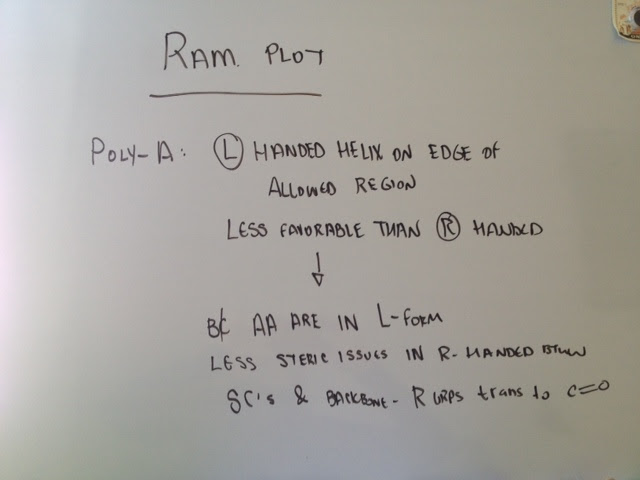 RAM. PLOT
POLY-A: L HANDED HELIX ON EDGE OF
ALLOWED REGION
LESS FAVORABLE THAN R HANDED
↓
B/C AA ARE IN L-FORM
LESS STERIC ISSUES IN R-HANDED BTWN
SC's & BACKBONE- R GRPS trans to C=O